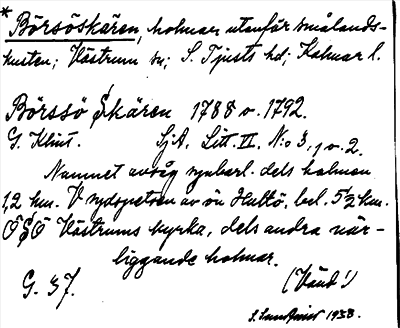 * Börsöskären, holmar utanför Smålands-
kusten; Västrum sn; S. Tjusts hd; Kalmar l.
Börssö Skären 1788 o. 1792.
G. Klint. SjA, Litt. II. N:o 3, 1 o. 2.
Namnet avsåg nynbarl. dels holmen
1,2 km. V sydspetsen av ön Hultö, bel. 5 1/2 km.
OSO Västrums kyrka, dels andra när-
liggande holmar.
G. 37. (Vänd!)
1938.